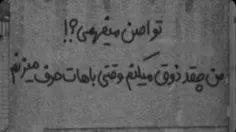 تو اصن میفهمی؟!
من چقد ذوق میکنم وقتی باهات حرف میزنم